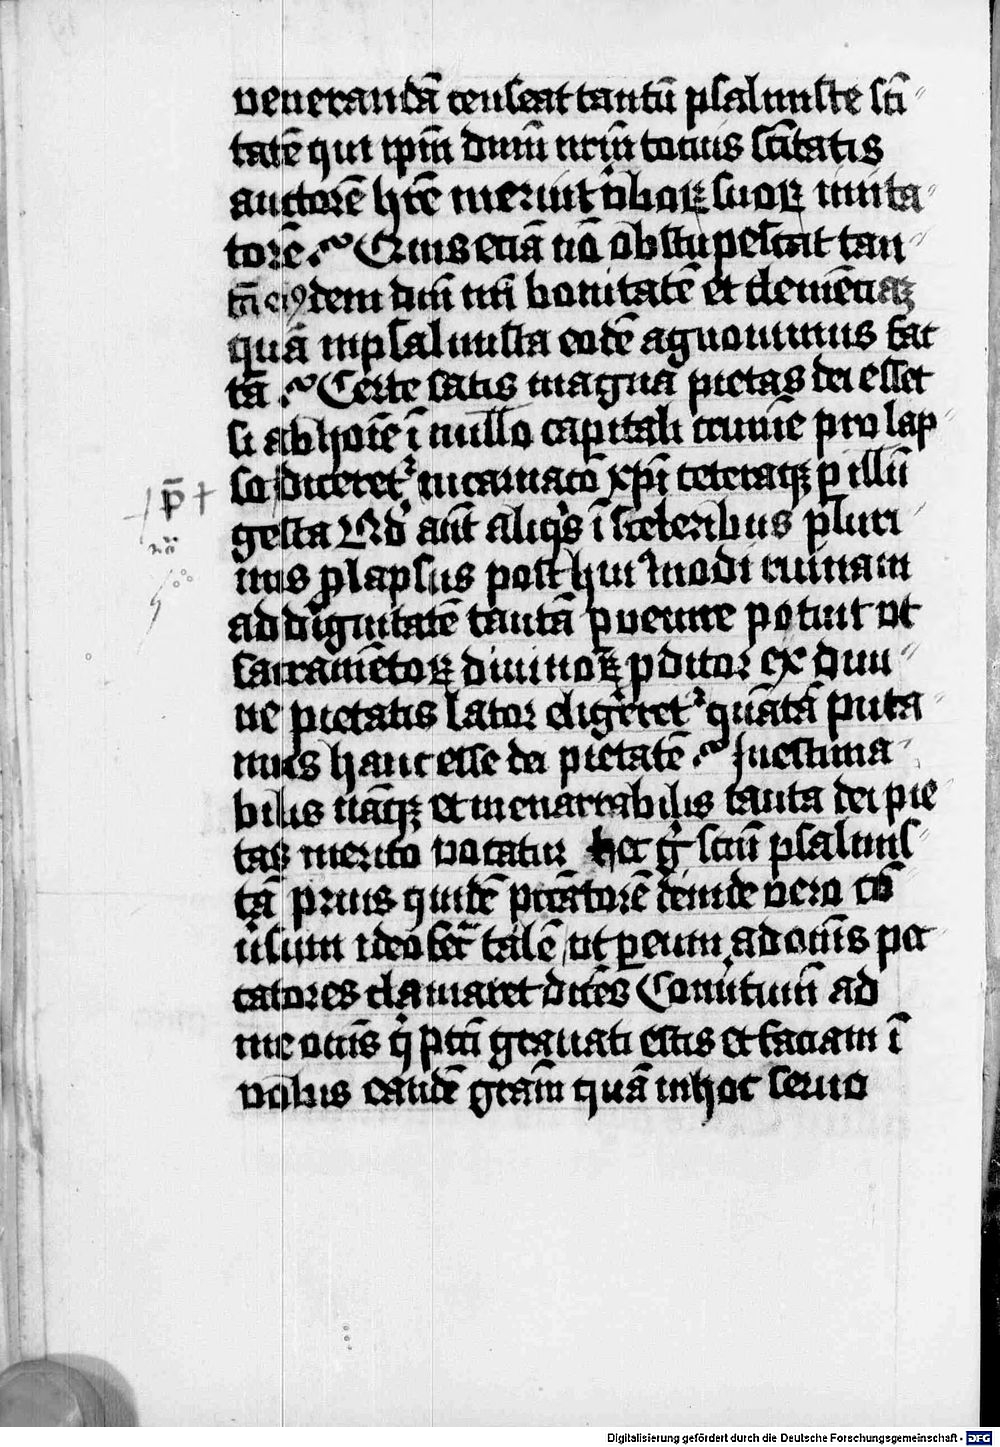 venerandā censeat tantū psalmiste scī
tatē qui ipm̄ dnm̄ nrm̄ tocius scītatis
auctorē hr̄e meruit v̓boꝝ suoꝝ imita
torē Quis eciā nō obstupescat tan
tā eiꝰdem dnī nrī bonitatē et clemēciaꝫ
quā in psalmista eodē agnovimus fac
tā Certe satis magna pietas dei esset
si ab hoīe ī nullo capitali crimīe pro lap
so diceret᷑ incarnacō xpī ceteraqꝫ ꝑ illū
gesta Qd̓ aūt aliq̓s ī sceleribus pluri
mis ꝓlapsus post huiꝰmodi ruinam
ad dignitatē tantā ꝑvenire potuit ut
sacramētoꝝ divinoꝝ ꝓditor ex divi
ne pietatis lator eligeret᷑ quātā puta
mus hanc esse dei pietatē Inestima
bilis nāqꝫ et inenarrabilis tanta dei pie
tas merito vocatur hec g̓ scm̄ psalmis
tā prius quidē pccātorē deinde vero cō
v̓sum ideo fec̄ talē ut ꝑ eum ad om̄s pec
catores clamaret dicēs Conv̓timī ad
me om̄s q̓ pccī gravati estis et faciam ī
vobis eandē grām quā in hoc servo